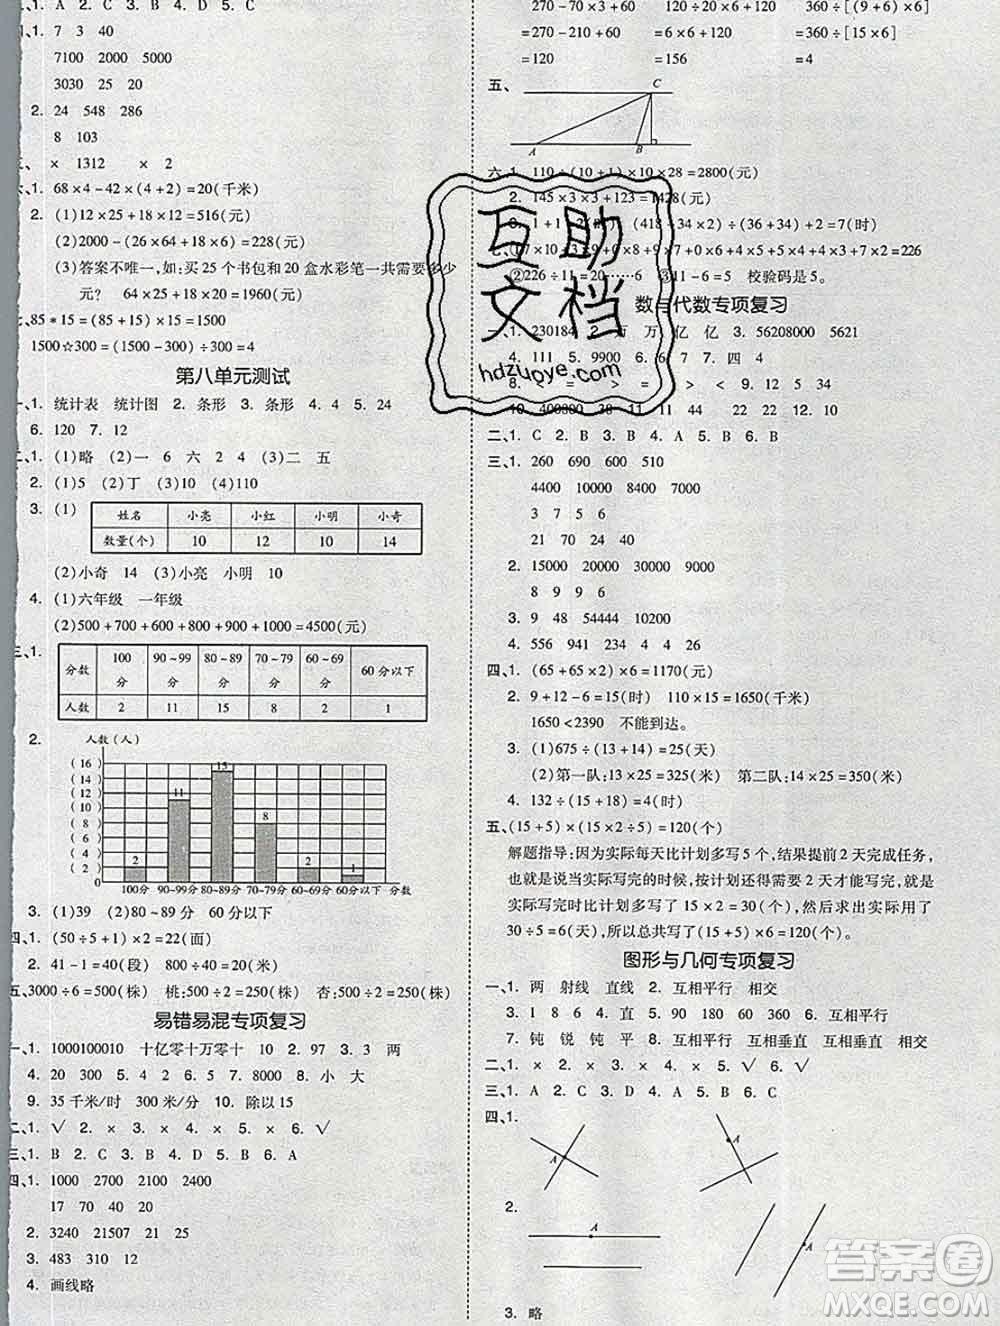 1. A 2. C 3. B 4. D 5. C
1. 7 3 40
7100 2000 2000
3030 25 20
2. 24 548 286
8 103
× 1312 × 2
1. 68×4-42×(4+2)=20(千米)
2. (1)12×25+18×12=516(元)
(2)2000-(25+18+20)×…=228(元)
(3)答案不唯一,如:买 25 个书包和 20 盒水彩笔一共需要多少
元? 64×25+18×20=1960(元)
七、85*15=(85+15)×15=1500
1500☆300=(1500-300)÷300=4
第八单元测试
一、1. 统计表 统计图 2. 条形 3. 条形 4. 4 5. 24
6. 120 7. 12
二、1. (1)略 (2)一 6 六 2 4 (3)二 五
2. (1)5 (2)丁 (3)10 (4)110
3. (1)
姓名 小亮 小红 小明 小奇
数量(个) 10 12 10 14
(2)小奇 14 (3)小亮 小明 10
4. (1)六年级 一年级
(2)500+700+600+800+900+1000=4500(元)
三、1.
分数 100分 90~99分 80~89分 70~79分 60~69分 60分以下
人数 2 11 15 8 2 1
2. 人数(人)
(16)
(14)
(12)
(10)
(8)
(6)
(4)
(2)
0
2 11 15 8 2 1
100分 90~99分 80~89分 70~79分 60~69分 60分以下 分数
3. (1)39 (2)80~89分 60分以下
四、1. (50÷5+1)×2=22(面)
2. 41-1=40(段) 800÷40=20(米)
五、3000÷6=500(株) 桃:500÷2=250(株) 杏:500÷2=250(株)
易错易混专项复习
一、1. 1000100010 十亿零十万零十 10 2. 97 3. 3 两
4. 20 300 5. 4 2 6. 2 7. 8000 8. 小 大
9. 35千米/时 300米/分 10. 除以15
二、1. √ 2. × 3. × 4. × 5. × 6. √
三、1. B 2. C 3. A 4. C 5. B 6. A
四、1. 1000 2700 2100 7200
17 70 40 20
2. 3240 21507 21 25
3. 483 310 12
4. 画线略
270-70×3+60 120÷20×6+120 360÷[(9+6)×6]
=270-210+60 =6×6+120 =360÷[15×6]
=120 =156 =4
五、
C
A B
六、1. 110÷(10+1)×10×28=2800(元)
2. 145×3+3+…=1428(元)
3. 1+1+2… (418+34×2)÷(34+2)+2=7(时)
七、①7×10+3×9+0×8+9×7+0×6+4×5+2×4+…×2=226
②226÷11=20……6 ③11-6=5 校验码是5。
数与代数专项复习
一、1. 230184 2. 万 万 亿 亿 3. 56208000 5621
4. 111 5. 9900 6. … 7. 四 4
8. > < = > = < 9. 12 5 34
10. 400300 38 11 11 44 22 22 10
二、1. C 2. B 3. B 4. A 5. B 6. C
三、1. 260 690 600 510
4400 10000 8000 7000
3 7 5 6
21 70 4 4
2. 15000 20000 40000 20000
8 9 9 6
3. 9 48 54444 10200
4. 556 941 234 4 4 26
四、1. (65+65×2)×6=1170(元)
2. 9+12-6=15(时) 110×15=1650(千米)
1650<2390 不能到达。
3. (1)675÷(13+14)=25(天)
(2)第一队:13×25=325(米) 第二队:14×25=350(米)
4. 132÷(15+18)=4(时)
五、(15+5)×(15×2÷5)=120(个)
解题指导:因为实际每天比计划多写5个,结果提前2天完成任务,
也就是说当实际写完的时候,按计划还得需要2天才能写完,所以
实际写完时比计划多写了15×2=30(个),然后求出实际用了
30÷5=6(天),所以总共写了(15+5)×6=120(个)。
图形与几何专项复习
一、1. 两 射线 直线 2. 互相平行 相交
3. 1 8 6 4. 直 5. 90 180 60 360 6. 互相平行
7. 钝 锐 钝 平 8. 互相垂直 互相垂直 互相平行
二、1. √ 2. × 3. × 4. × 5. × 6. √
三、1. A 2. C 3. D 4. A 5. B 6. C
四、1. A A
2. A A
3. 略
互助
文档
hdzuoye.com
答案圈
MXQE.COM